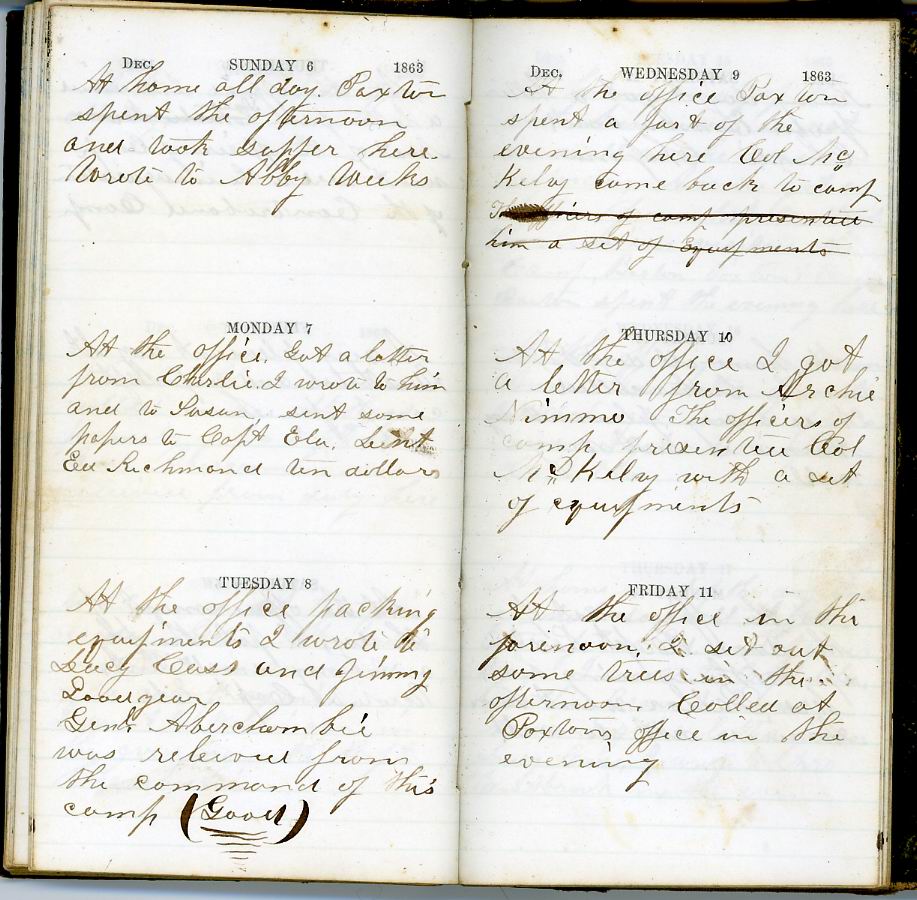 DEC. SUNDAY 6 1863
At home all day. Paxton
spent the afternoon
and took supper here.
Wrote to Abby Weeks
MONDAY 7
At the office. Got a letter
from Charlie. I wrote to him
and to Susan sent some
papers to Capt Ela. Lent
Ed Richmond ten dollars
TUESDAY 8
At the office packing
equipments I wrote to
Lucy Cass and Jimmy
Goodyear
Genl. Aberchombie
was releived from
the command of this
camp (Good)
DEC. WEDNESDAY 9 1863
At the office Paxton
spent a part of the
evening here Col Mc
Kelvy came back to camp
The officers of camp presented
him a set of Equipments
THURSDAY 10
At the office I got
a letter from Archie
Nimmo The officers of
camp presented Col
McKelvy with a set
of equipments
FRIDAY 11
At the office in the
forenoon. I set out
some trees in the
afternoon. Called at
Paxtons office in the
evening